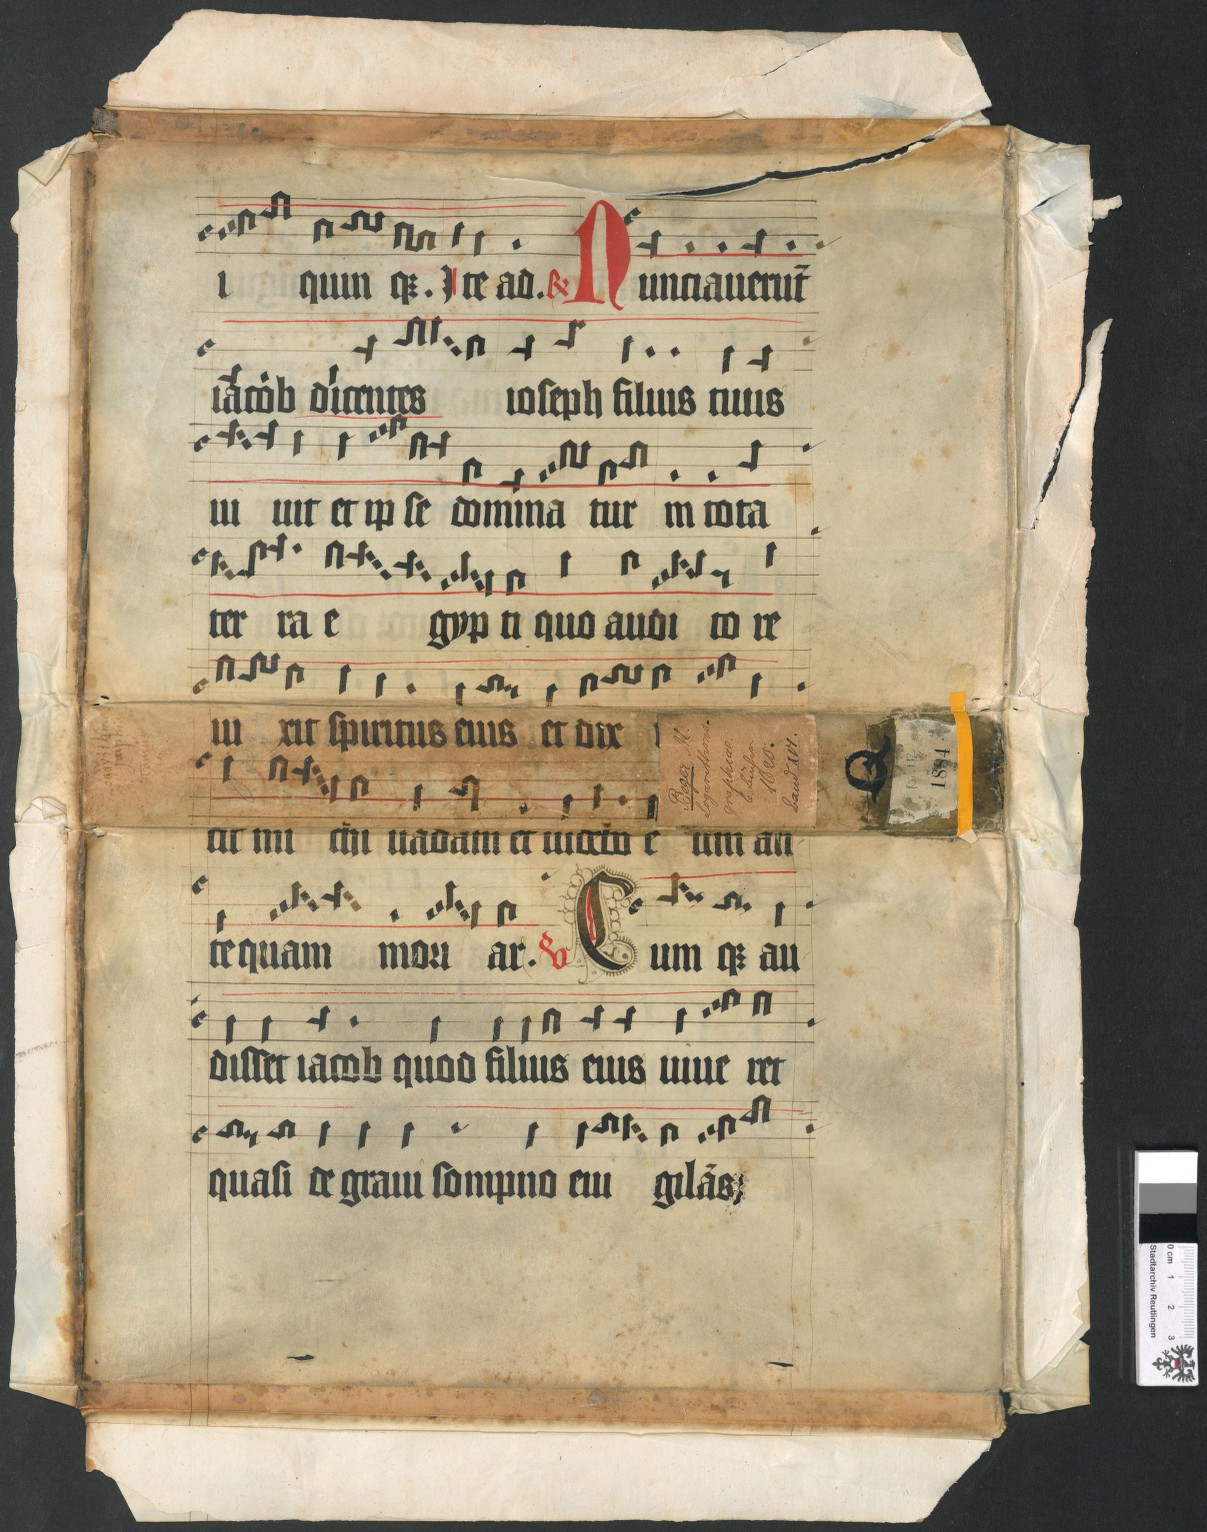 i quin qꝫ. Ite ad. ℟ Nunciauerūt
iacob dicentes ioseph filius tuus
ui uit et ip se domina tur in tota
ter ra e gyp ti quo audi to re
ui xit spiritus eius et dix
cit mi chi uadam et uidebo e um an
tequam mori ar. ℣ Cum qꝫ au
disset iacob quod filius eius uiue ret
quasi de graui sompno eui gilās;
Beger M.
1696.
Band XIV.
Q
1884
0 cm 1 2 3
Stadtarchiv Reutlingen